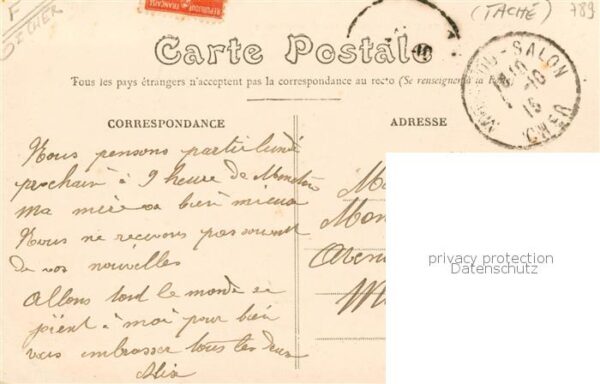 F
(TACHÉ) 789
Carte Postale
Tous les pays étrangers n'acceptent pas la correspondance au recto (Se renseigner à la
CORRESPONDANCE
ADRESSE
SALON
CHER
Nous pensons partir lundi
prochain à 9 heure de
Ma mère va bien mieux
Nous ne recevons pas souvent
de vos nouvelles
Allons tout le monde se
joient à moi pour bien
vous embrasser tous les deux
Alix
privacy protection
Datenschutz